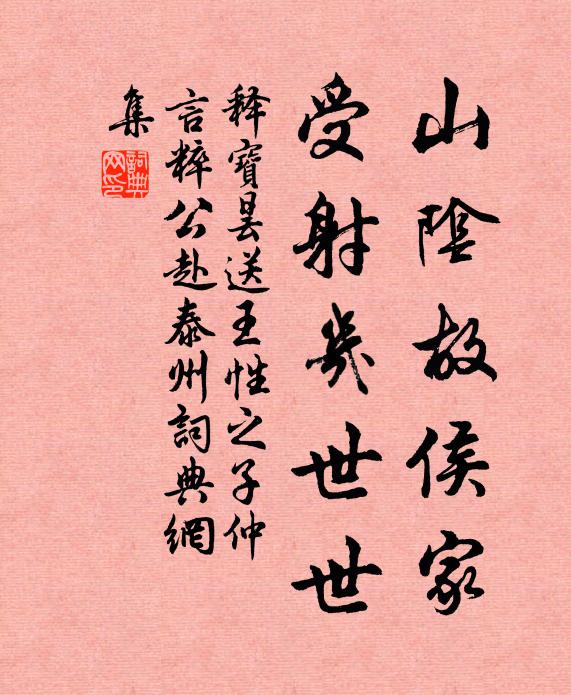 山陰故侯家
受射幾世世
释寶曇送王性之子仲
言粹公赴泰州詞典網
集
詞典網印